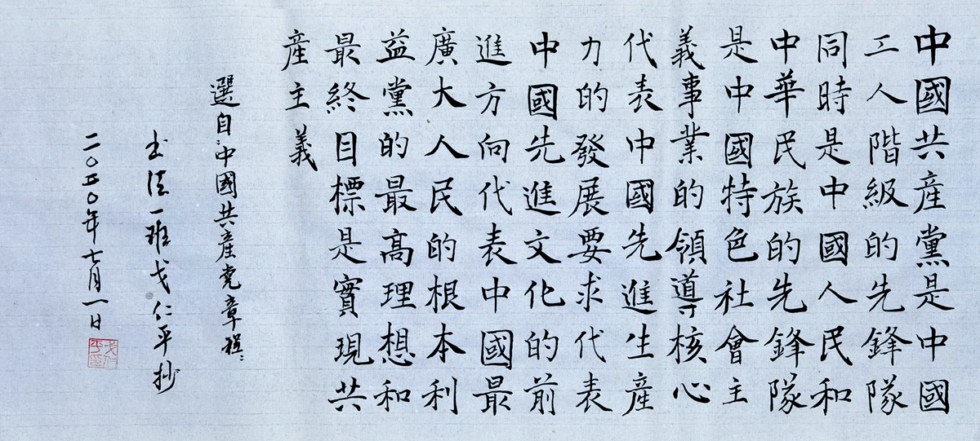 中國共產黨是中國
工人階級的先鋒隊
同時是中國人民和
中華民族的先鋒隊
是中國特色社會主
義事業的領導核心
代表中國先進生產
力的發展要求代表
中國先進文化的前
進方向代表中國最
廣大人民的根本利
益黨的最高理想和
最終目標是實現共
產主義
選自中國共產党章程
書法一班戈仁平抄
二〇一〇年七月一日